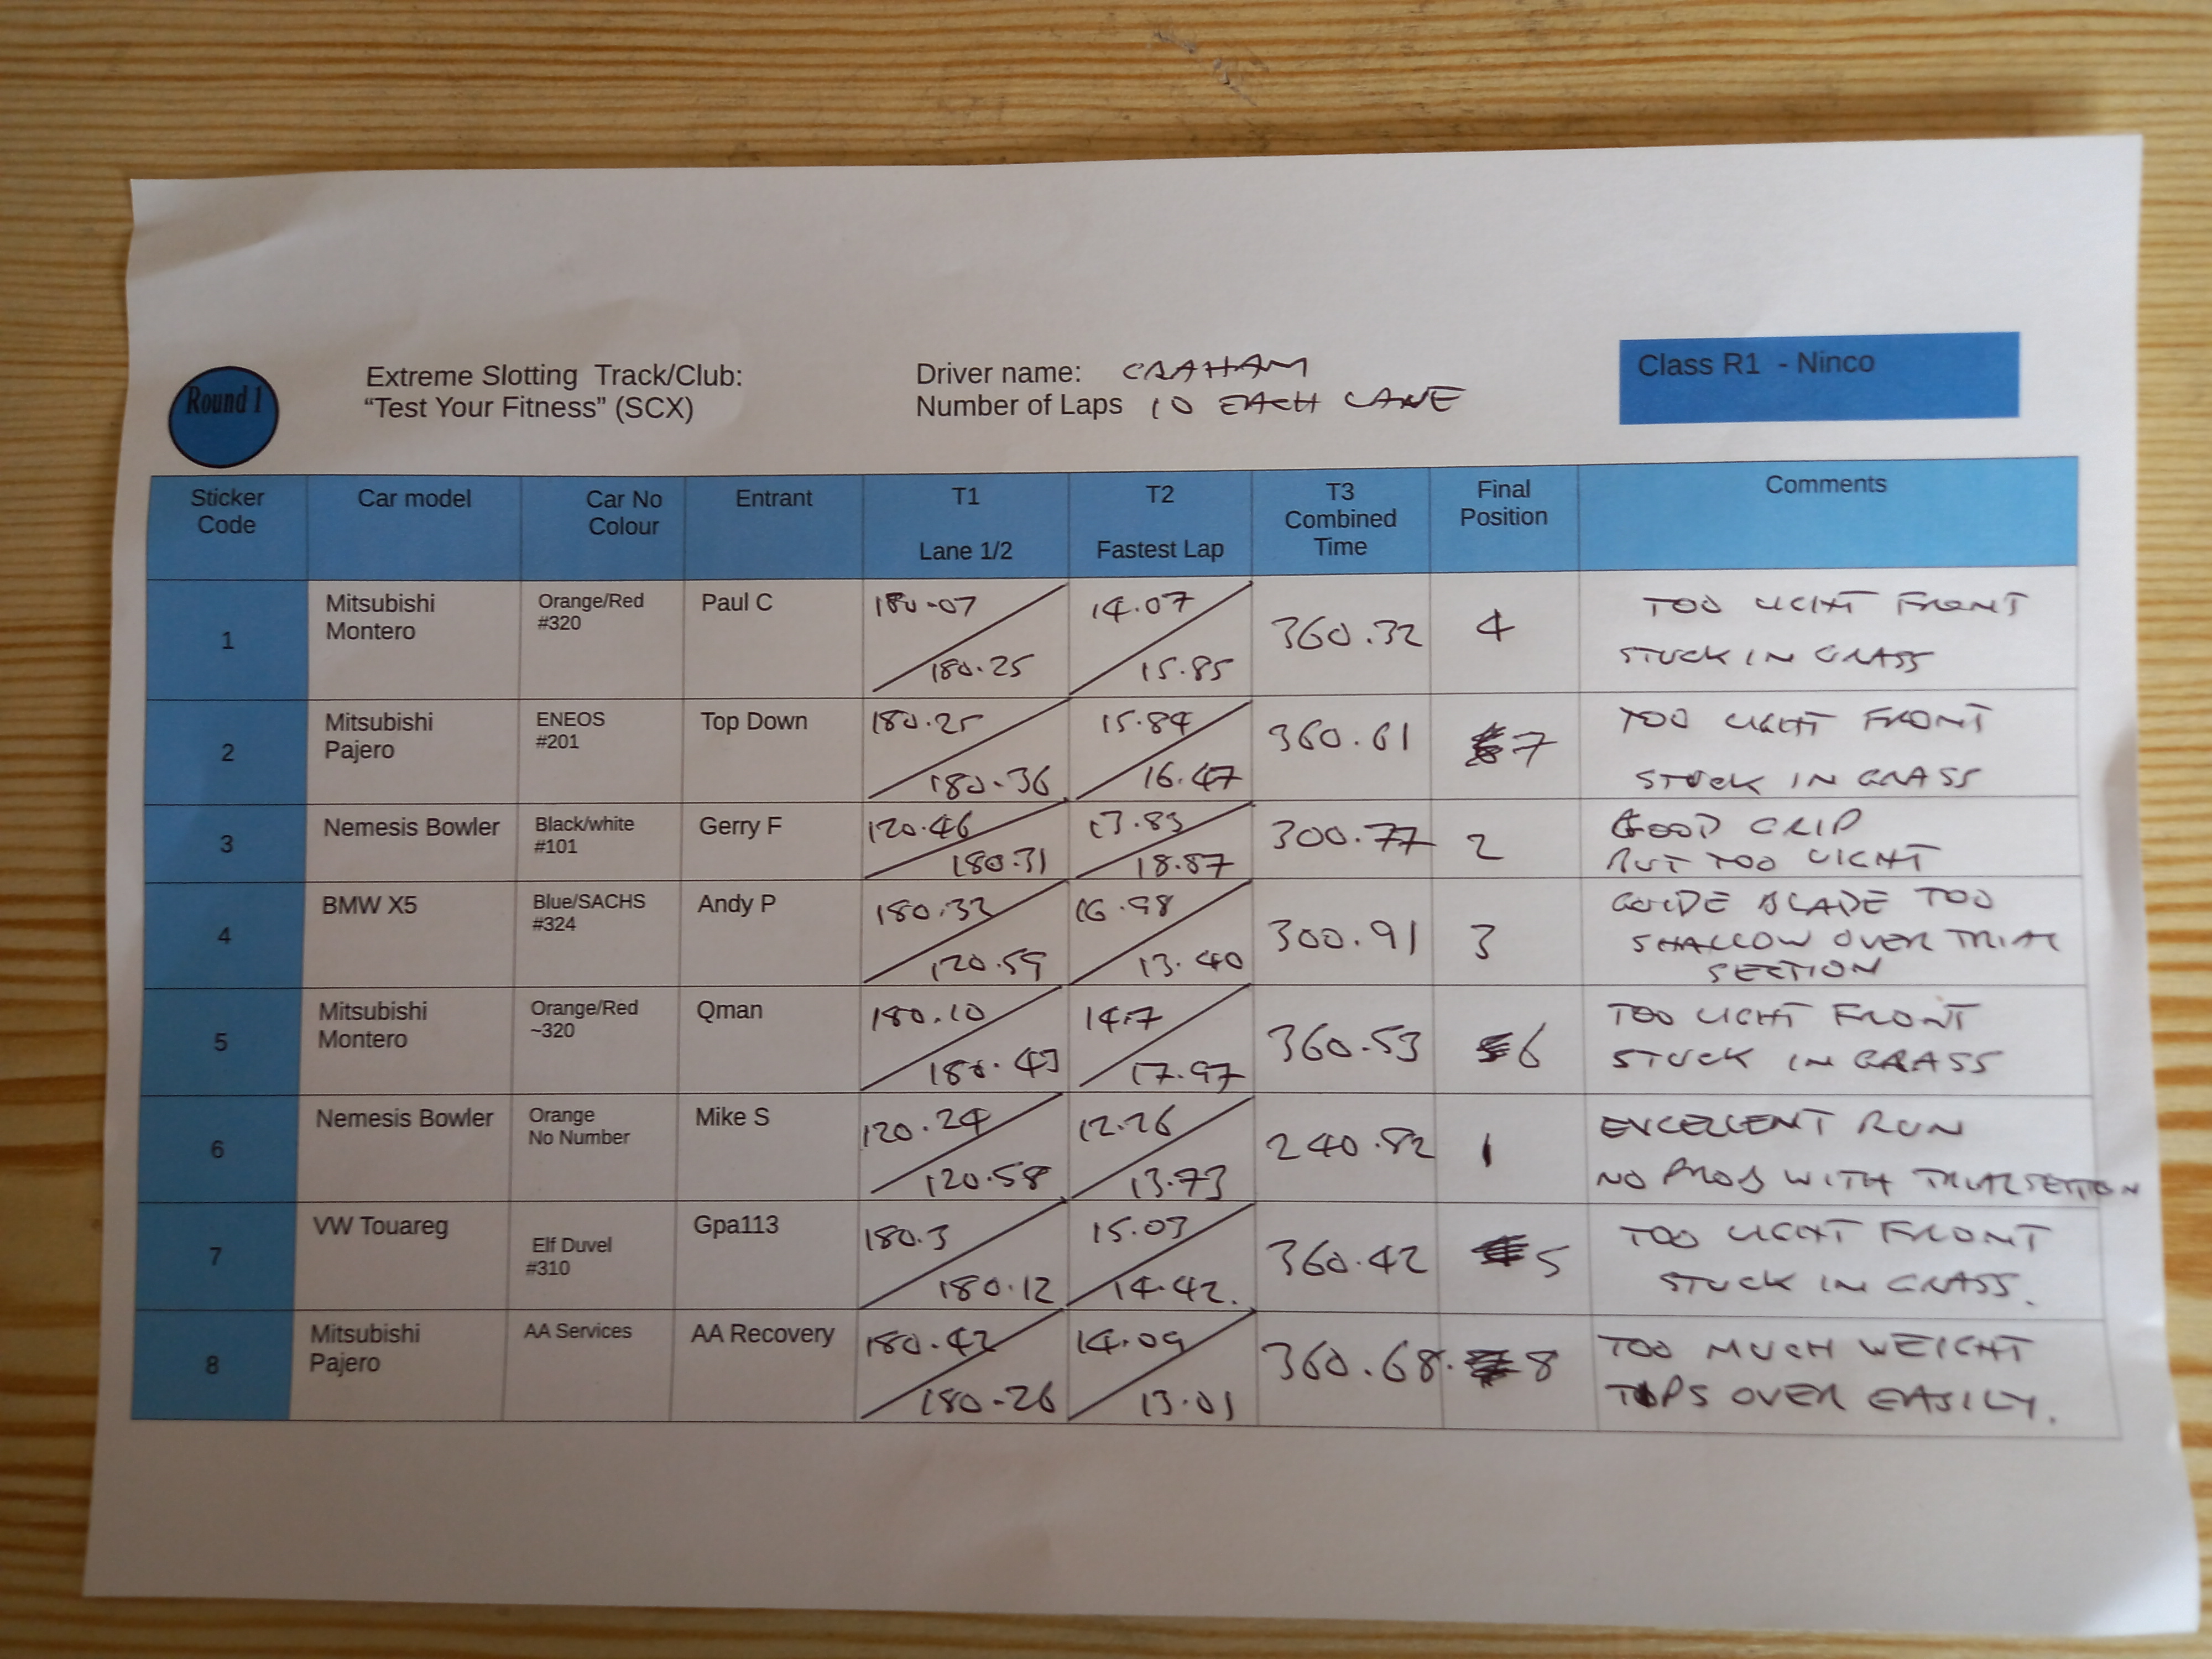 Round 1
Extreme Slotting Track/Club:
“Test Your Fitness” (SCX)
Driver name: GRAHAM
Number of Laps 10 EACH LANE
Class R1 - Ninco
Sticker Code
Car model
Car No Colour
Entrant
T1 Lane 1/2
T2 Fastest Lap
T3 Combined Time
Final Position
Comments
1
Mitsubishi Montero
Orange/Red #320
Paul C
180.07
180.25
14.07
15.85
360.32
4
TOO LIGHT FRONT
STUCK IN GRASS
2
Mitsubishi Pajero
ENEOS #201
Top Down
180.25
180.36
15.84
16.47
360.61
7
TOO LIGHT FRONT
STUCK IN GRASS
3
Nemesis Bowler
Black/white #101
Gerry F
120.46
180.31
13.83
18.87
300.77
2
GOOD GRIP
BUT TOO LIGHT
4
BMW X5
Blue/SACHS #324
Andy P
180.32
120.59
16.98
13.40
300.91
3
GUIDE BLADE TOO
SHALLOW OVER TRIAL
SECTION
5
Mitsubishi Montero
Orange/Red ~320
Qman
180.10
180.43
14.7
17.97
360.53
6
TOO LIGHT FRONT
STUCK IN GRASS
6
Nemesis Bowler
Orange No Number
Mike S
120.24
120.58
12.26
13.73
240.82
1
EXCELLENT RUN
NO PROB WITH TRIAL SECTION
7
VW Touareg
Elf Duvel #310
Gpa113
180.3
180.12
15.03
14.42.
360.42
5
TOO LIGHT FRONT
STUCK IN GRASS.
8
Mitsubishi Pajero
AA Services
AA Recovery
180.42
180.26
14.09
13.01
360.68.
8
TOO MUCH WEIGHT
TIPS OVER EASILY.